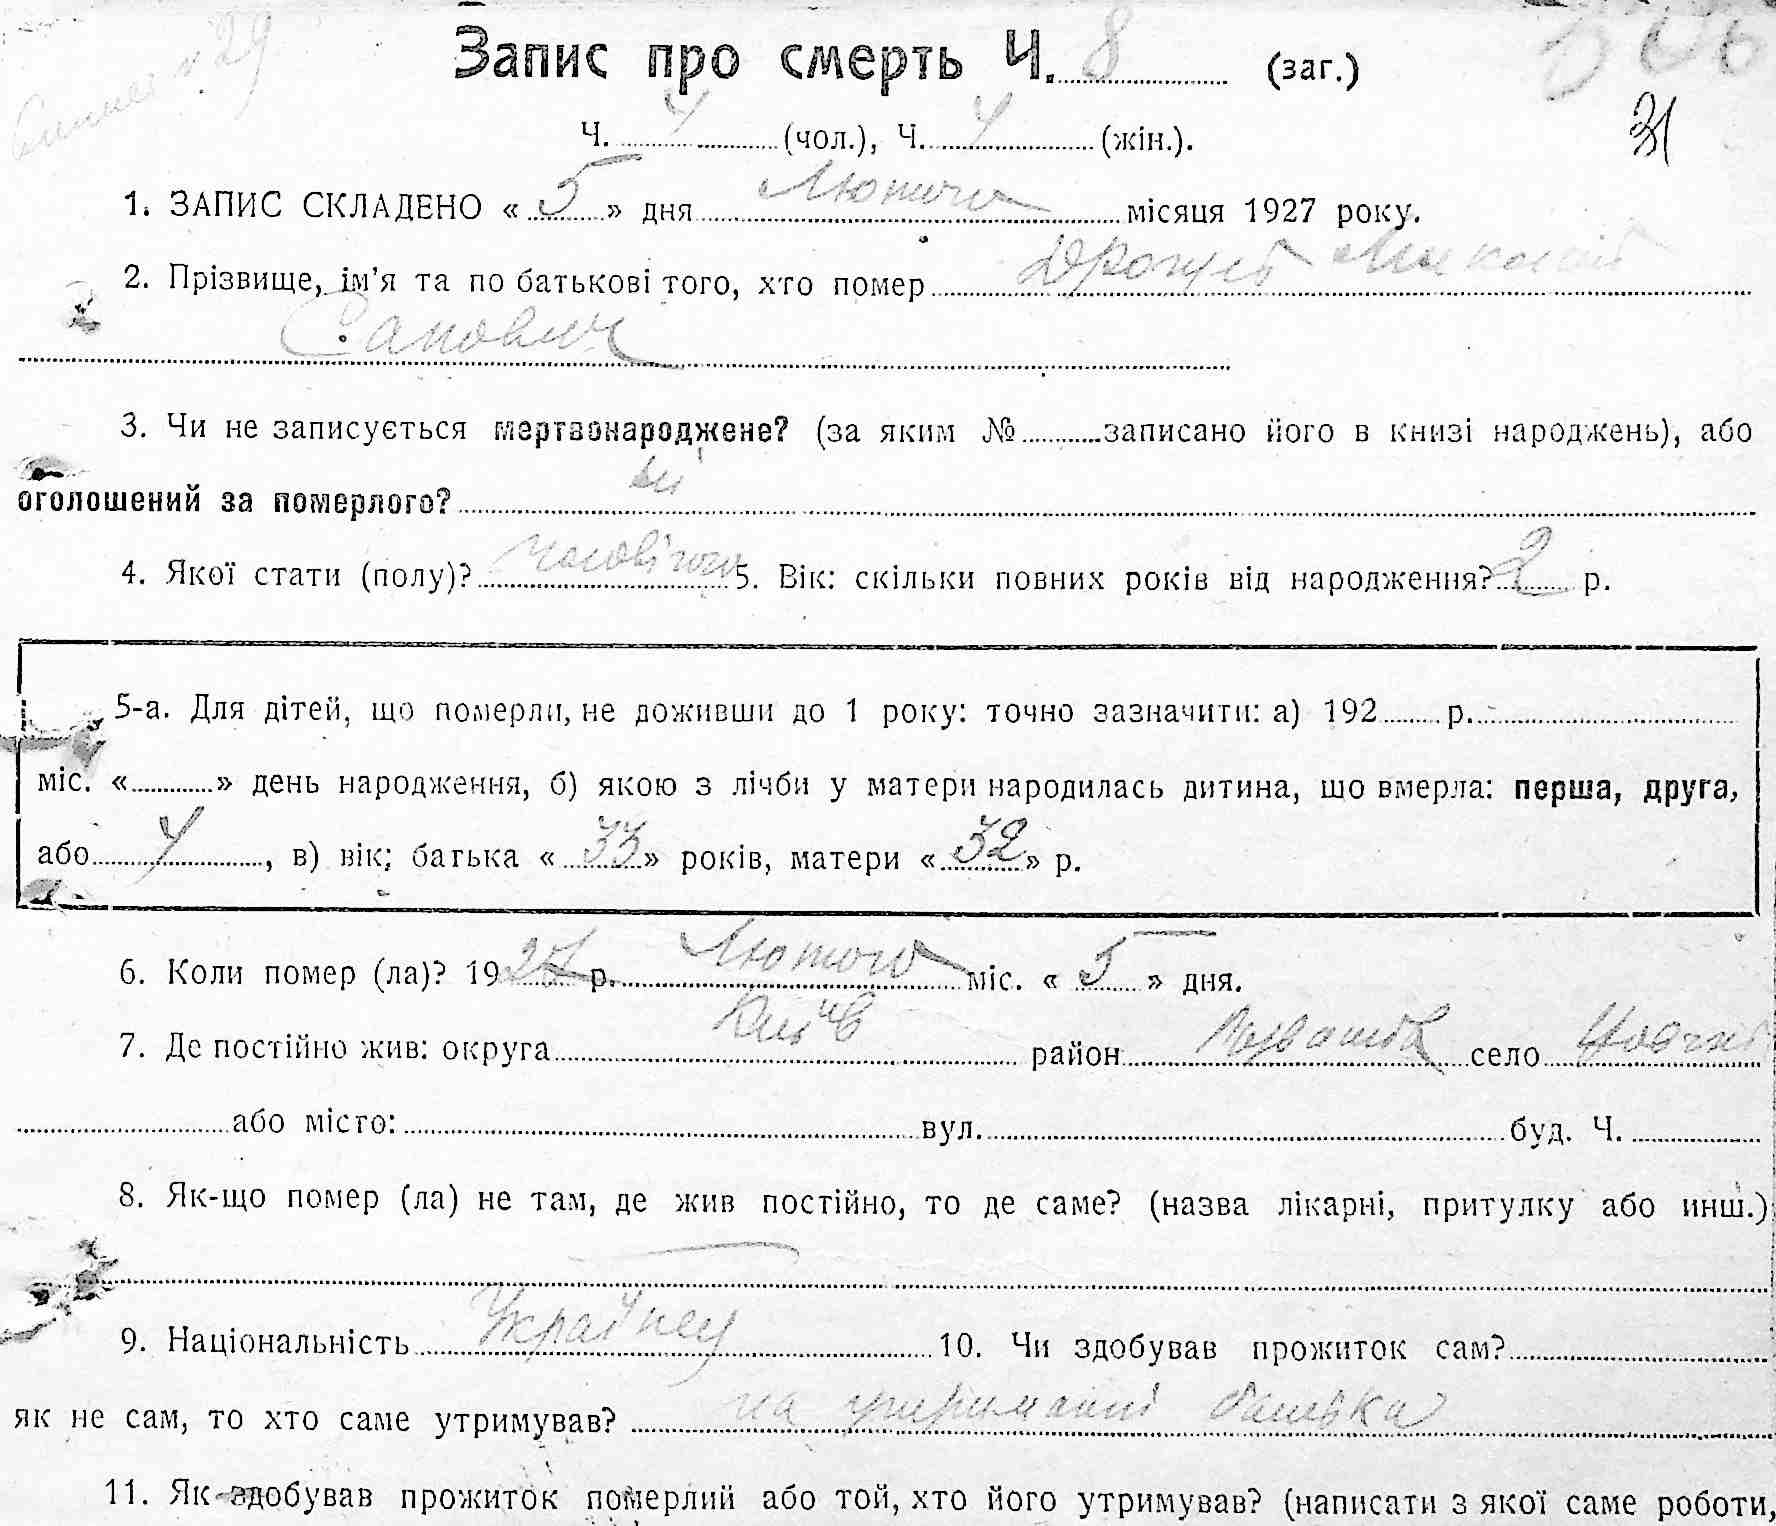 29
Запис про смерть Ч. 8 (заг.)
31
Ч. 4 (чол.), Ч. 4 (жін.).
1. ЗАПИС СКЛАДЕНО « 5 » дня Лютого місяця 1927 року.
2. Прізвище, ім'я та по батькові того, хто помер Миколай
3. Чи не записується мертвонароджене? (за яким № записано його в книзі народжень), або
оголошений за померлого? ні
4. Якої стати (полу)? чоловічого 5. Вік: скільки повних років від народження? 2 р.
5-а. Для дітей, що померли, не доживши до 1 року: точно зазначити: а) 192 р.
міс. « » день народження, б) якою з лічби у матери народилась дитина, що вмерла: перша, друга,
або 4, в) вік; батька « 33 » років, матери « 32 » р.
6. Коли помер (ла)? 1927 р. Лютого міс. « 5 » дня.
7. Де постійно жив: округа Київ район село
або місто: вул. буд. Ч.
8. Як-що помер (ла) не там, де жив постійно, то де саме? (назва лікарні, притулку або инш.)
9. Національність Українец 10. Чи здобував прожиток сам?
як не сам, то хто саме утримував? на утриманні батька
11. Як здобував прожиток померлий або той, хто його утримував? (написати з якої саме роботи,